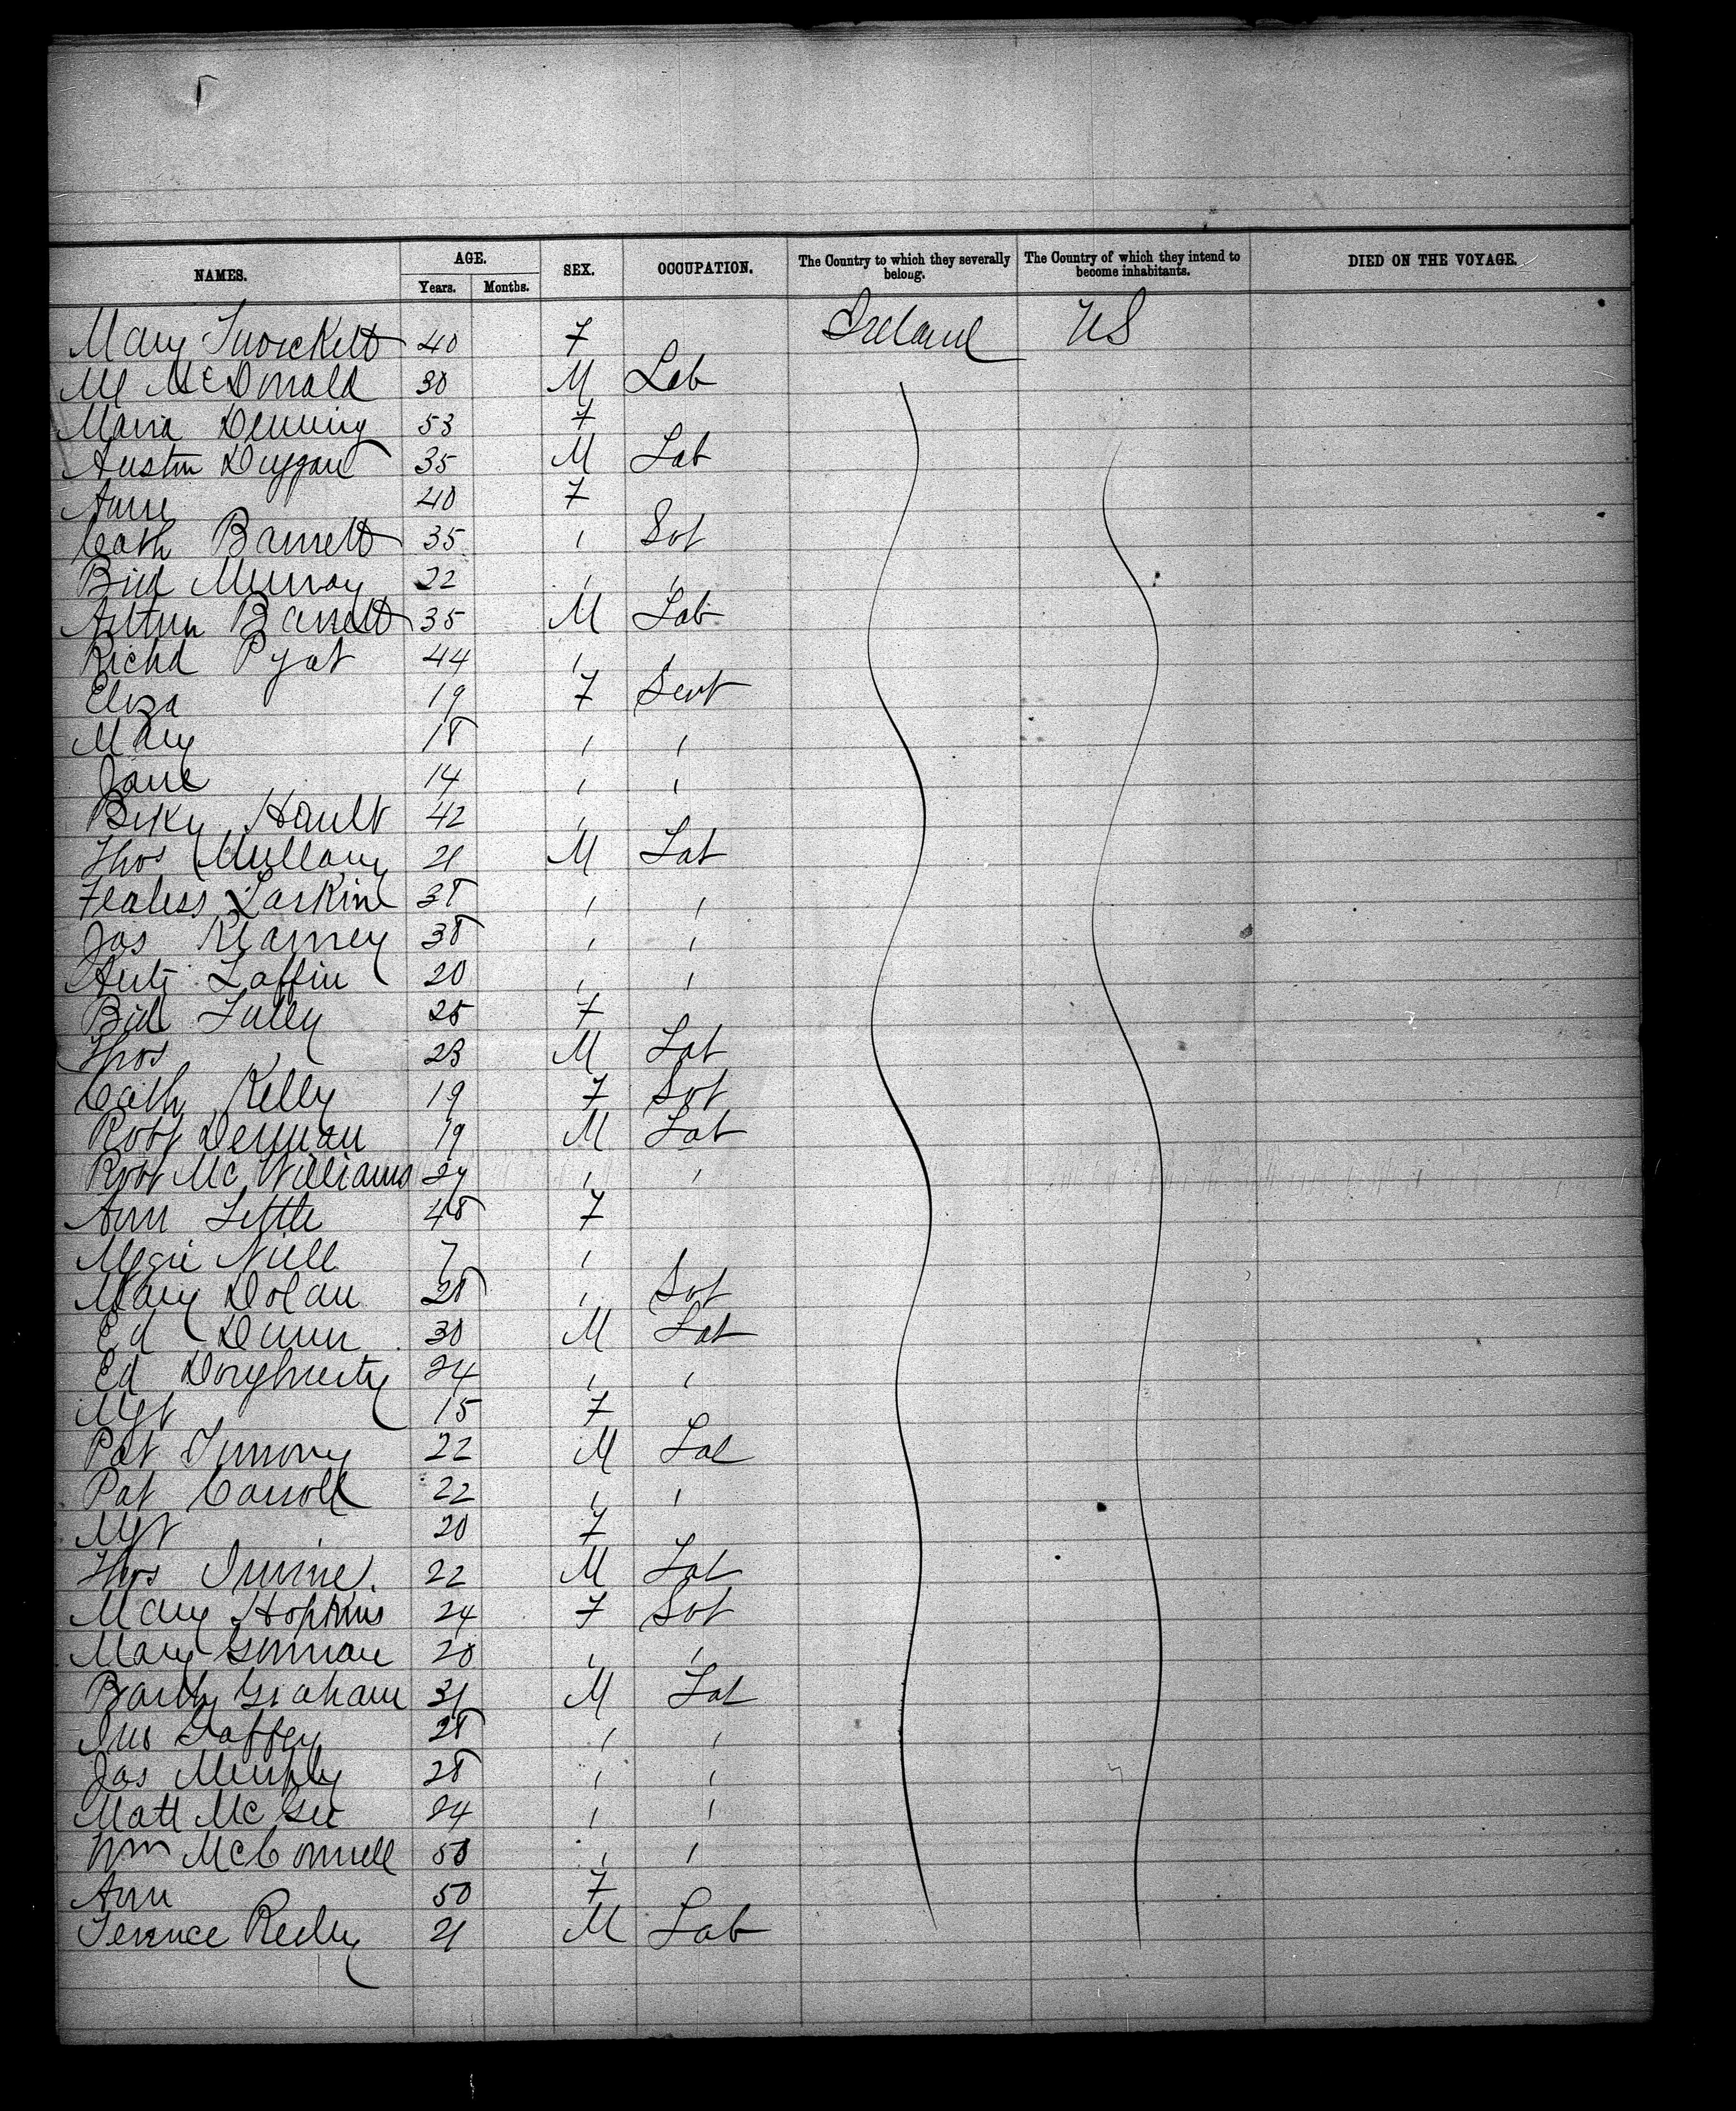 NAMES. AGE. SEX. OCCUPATION. The Country to which they severally belong. The Country of which they intend to become inhabitants. DIED ON THE VOYAGE.
Years. Months.
Mary 40 F Ireland US
Ml McDonald 30 M Lab
Maria Denning 53 F
Austin Duggan 35 M Lab
Anne 40 F
Cath Barrett 35 " Svt
Bid Murray 22 " "
Arthur Barrett 35 M Lab
Richd Pyat 44 " "
Eliza 19 F Servt
Mary 18 " "
Jane 14 " "
42 "
Thos Mullany 21 M Lab
Larkin 38 " "
Jas Kearney 38 " "
Laffin 20 " "
Bid 25 F
Thos 23 M Lab
Cath Kelly 19 F Svt
Robt 19 M Lab
Robt McWilliams 24 " "
Ann Little 48 F
Niell 7 "
Mary Dolan 28 " Svt
Ed Dunn 30 M Lab
Ed Dougherty 24 " "
Mgt 15 F
Pat 22 M Lab
Pat Carroll 22 " "
Mgt 20 F
Thos Irvine. 22 M Lab
Mary Hopkins 24 F Svt
Mary Gorman 20 " "
Barth Graham 31 M Lab
Jno Gaffey 28 " "
Jas Murphy 28 " "
Matt McGee 24 " "
Wm McConnell 50 " "
Ann 50 F
Terence Reilly 21 M Lab